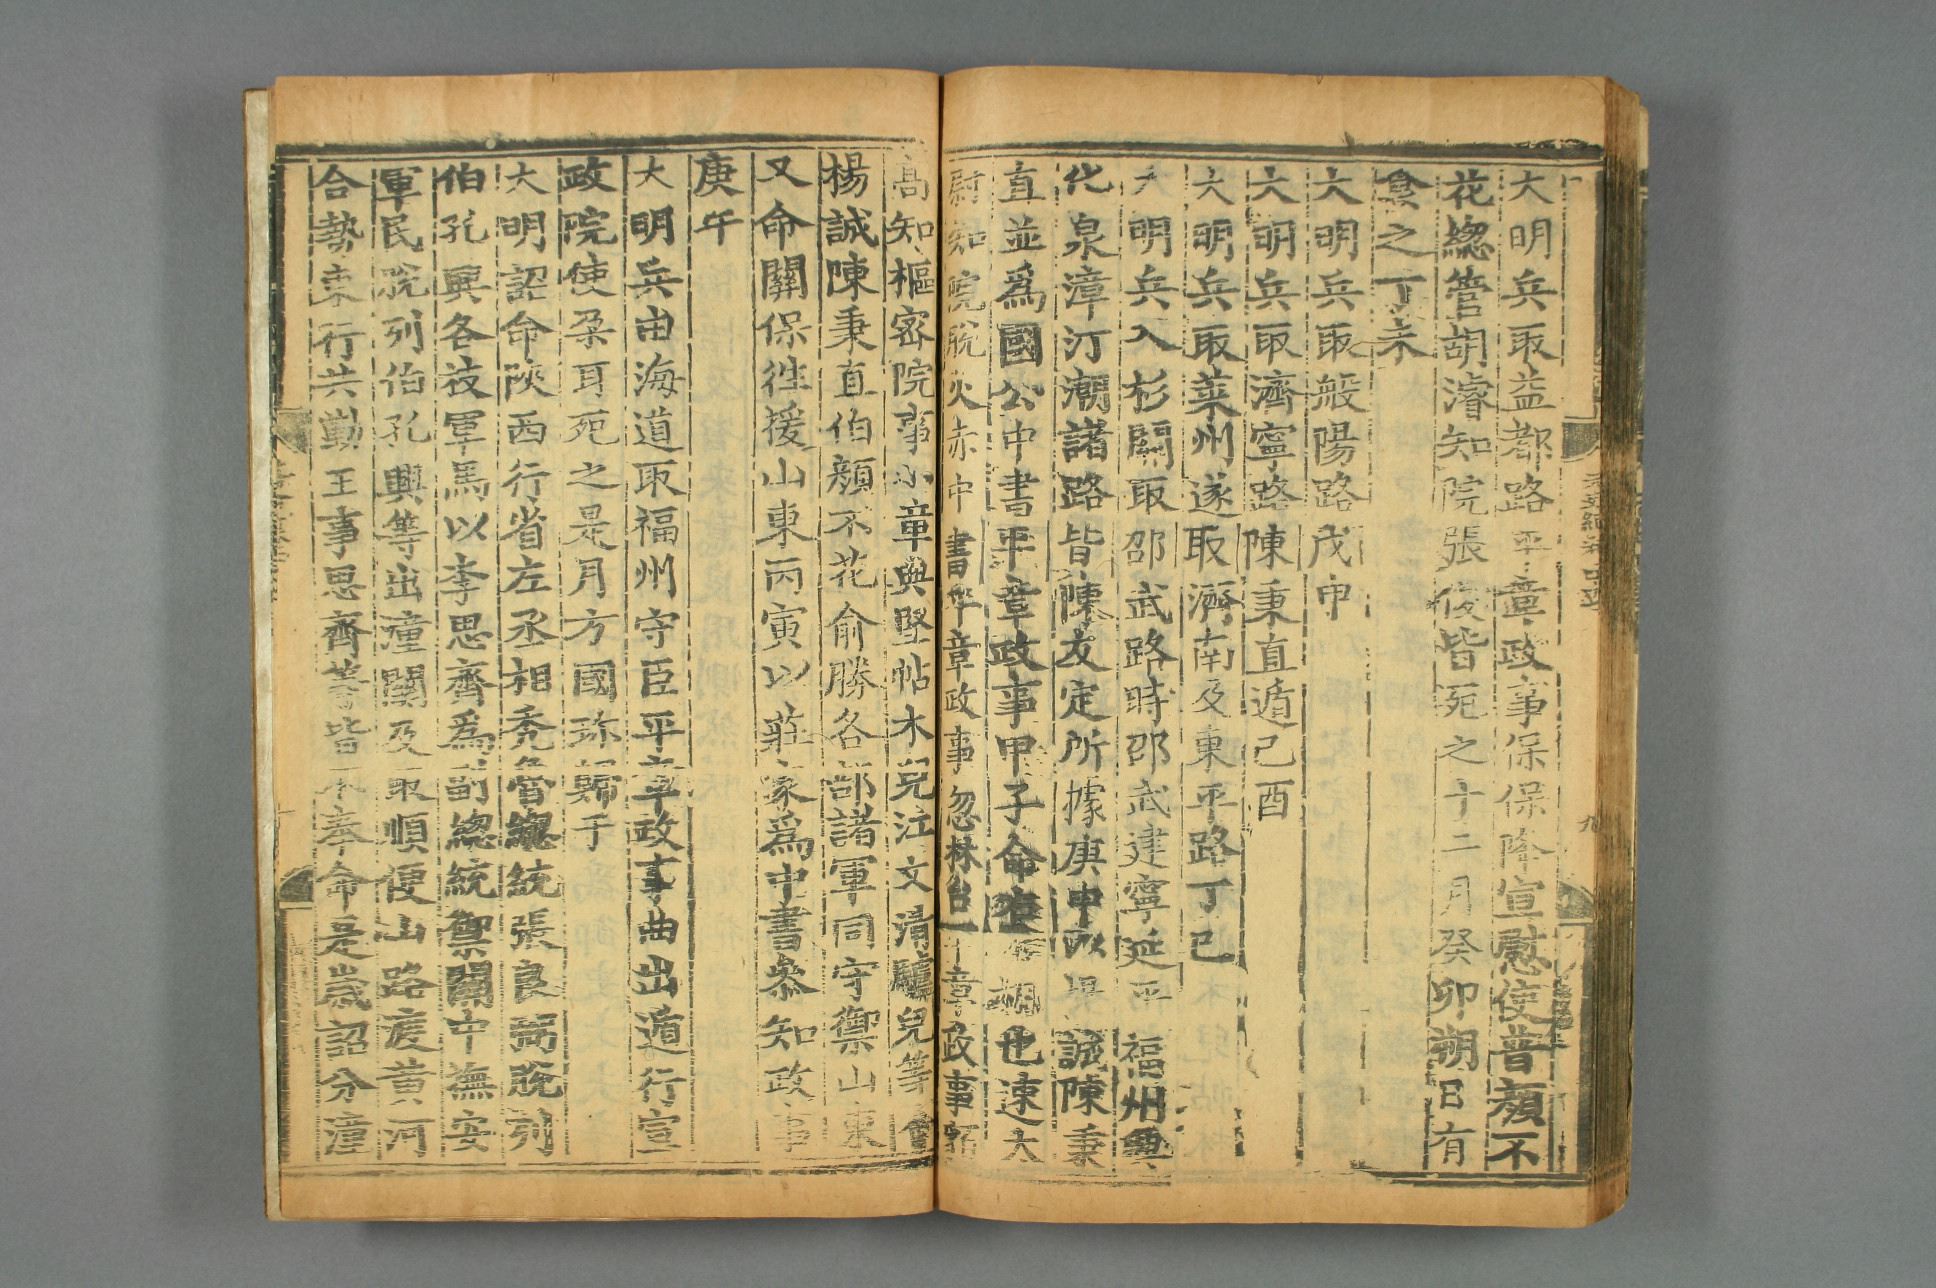 大明兵取益都路平章政事保保降宣慰使普顔不
花緫管胡濬知院張俊皆死之十二月癸卯朔日有
食之丁未
大明兵取般陽路戊申
大明兵取濟寧路陳秉直遁己酉
大明兵取萊州遂取濟南及東平路丁巳
大明兵入杉關取邵武路時邵武建寧延平福州興
化泉漳汀潮諸路皆陳友定所據庚申以楊誠陳秉
直並爲國公中書平章政事甲子命也速太
尉知院脫火赤中書平章政事忽林台平章政事貊
高知樞密院事小章典堅帖木兒江文清驢兒等會
楊誠陳秉直伯顔不花俞勝各部諸軍同守禦山東
又命關保徃援山東丙寅以莊家爲中書參知政事
庚午
大明兵由海道取福州守臣平章政事曲出遁行宣
政院使朶耳死之是月方國珎歸于
大明詔命陝西行省左丞相秃魯緫統張良弼脫列
伯孔興各枝軍馬以李思齊爲副緫統禦關中撫安
軍民脫列伯孔興等出潼關及取順便山路渡黃河
合勢東行共勤王事思齊等皆不奉命是歲詔分潼